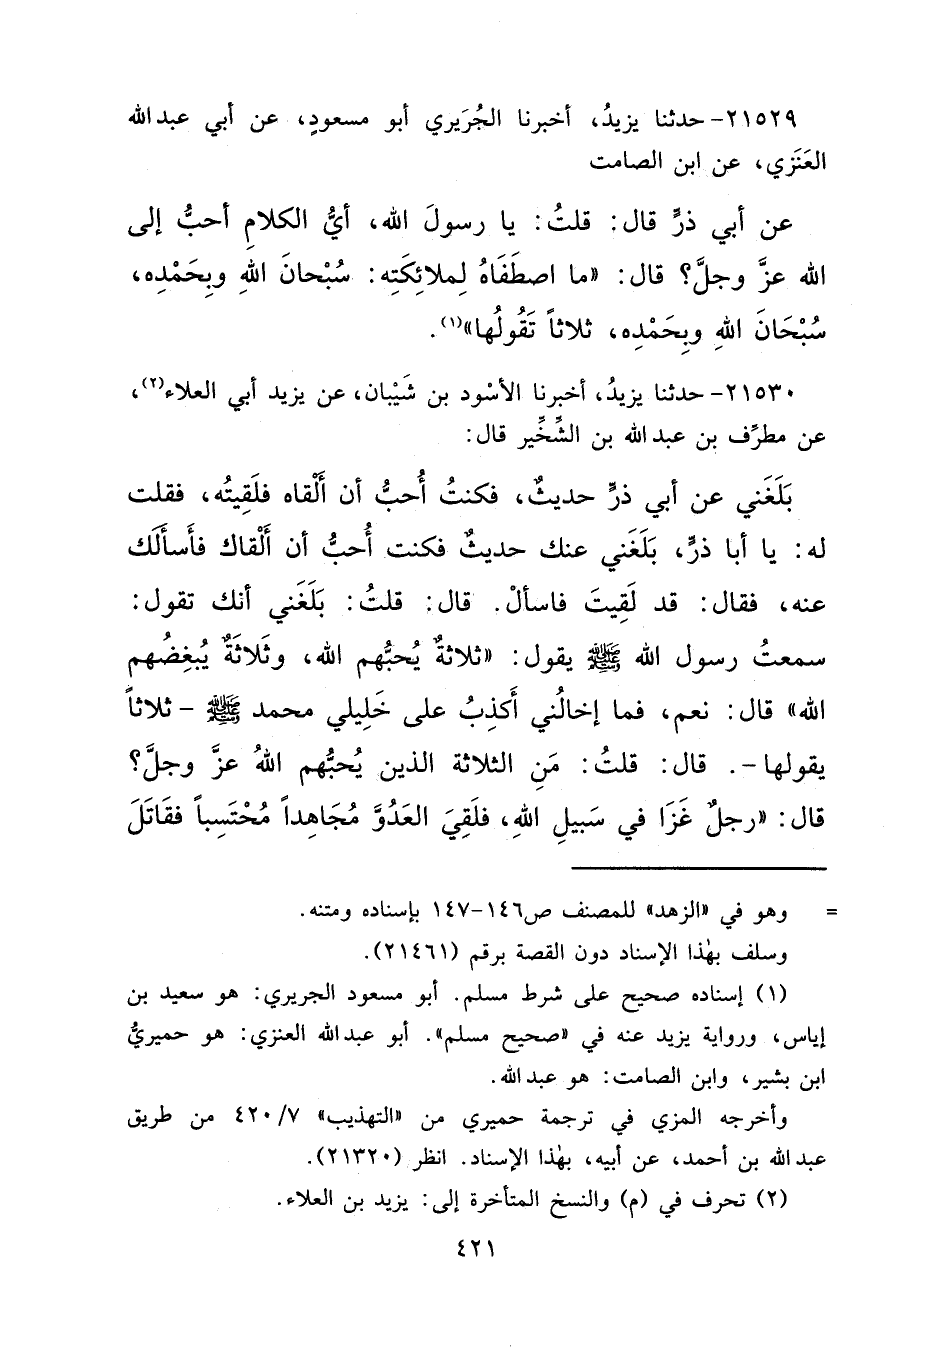 ٢١٥٢٩- حدثنا يزيدُ، أخبرنا الجُرَيري أبو مسعودٍ، عن أبي عبدالله
العَنَزي، عن ابن الصامت
عن أبي ذرٍّ قال: قلتُ: يا رسولَ الله، أيُّ الكلامِ أحبُّ إلى
الله عزَّ وجلَّ؟ قال: «ما اصطَفَاهُ لِملائِكَتِه: سُبْحانَ اللهِ وبِحَمْدِه،
سُبْحَانَ اللهِ وبِحَمْدِه، ثلاثاً تَقُولُها»(١).
٢١٥٣٠- حدثنا يزيدُ، أخبرنا الأسْود بن شَيْبان، عن يزيد أبي العلاء(٢)،
عن مطرِّف بن عبدالله بن الشِّخِّير قال:
بَلَغَني عن أبي ذرٍّ حديثٌ، فكنتُ أُحبُّ أن أَلْقاه فلَقِيتُه، فقلت
له: يا أبا ذرٍّ، بَلَغَني عنك حديثٌ فكنت أُحبُّ أن أَلْقاك فأَسأَلَك
عنه، فقال: قد لَقِيتَ فاسألْ. قال: قلتُ: بَلَغَني أنك تقول:
سمعتُ رسول الله ﷺ يقول: «ثلاثةٌ يُحبُّهم الله، وثَلاثَةٌ يُبغِضُهم
الله» قال: نعم، فما إخالُني أَكذِبُ على خَلِيلي محمد ﷺ - ثلاثاً
يقولها -. قال: قلتُ: مَنِ الثلاثة الذين يُحبُّهم اللهُ عزَّ وجلَّ؟
قال: «رجلٌ غَزَا في سَبيلِ اللهِ، فلَقِيَ العَدُوَّ مُجَاهِداً مُحْتَسِباً فقَاتَلَ
= وهو في «الزهد» للمصنف ص١٤٦-١٤٧ بإسناده ومتنه.
وسلف بهٰذا الإسناد دون القصة برقم (٢١٤٦١).
(١) إسناده صحيح على شرط مسلم. أبو مسعود الجريري: هو سعيد بن
إياس، ورواية يزيد عنه في «صحيح مسلم». أبو عبدالله العنزي: هو حميريُّ
ابن بشير، وابن الصامت: هو عبدالله.
وأخرجه المزي في ترجمة حميري من «التهذيب» ٤٢٠/٧ من طريق
عبدالله بن أحمد، عن أبيه، بهٰذا الإسناد. انظر (٢١٣٢٠).
(٢) تحرف في (م) والنسخ المتأخرة إلى: يزيد بن العلاء.
٤٢١